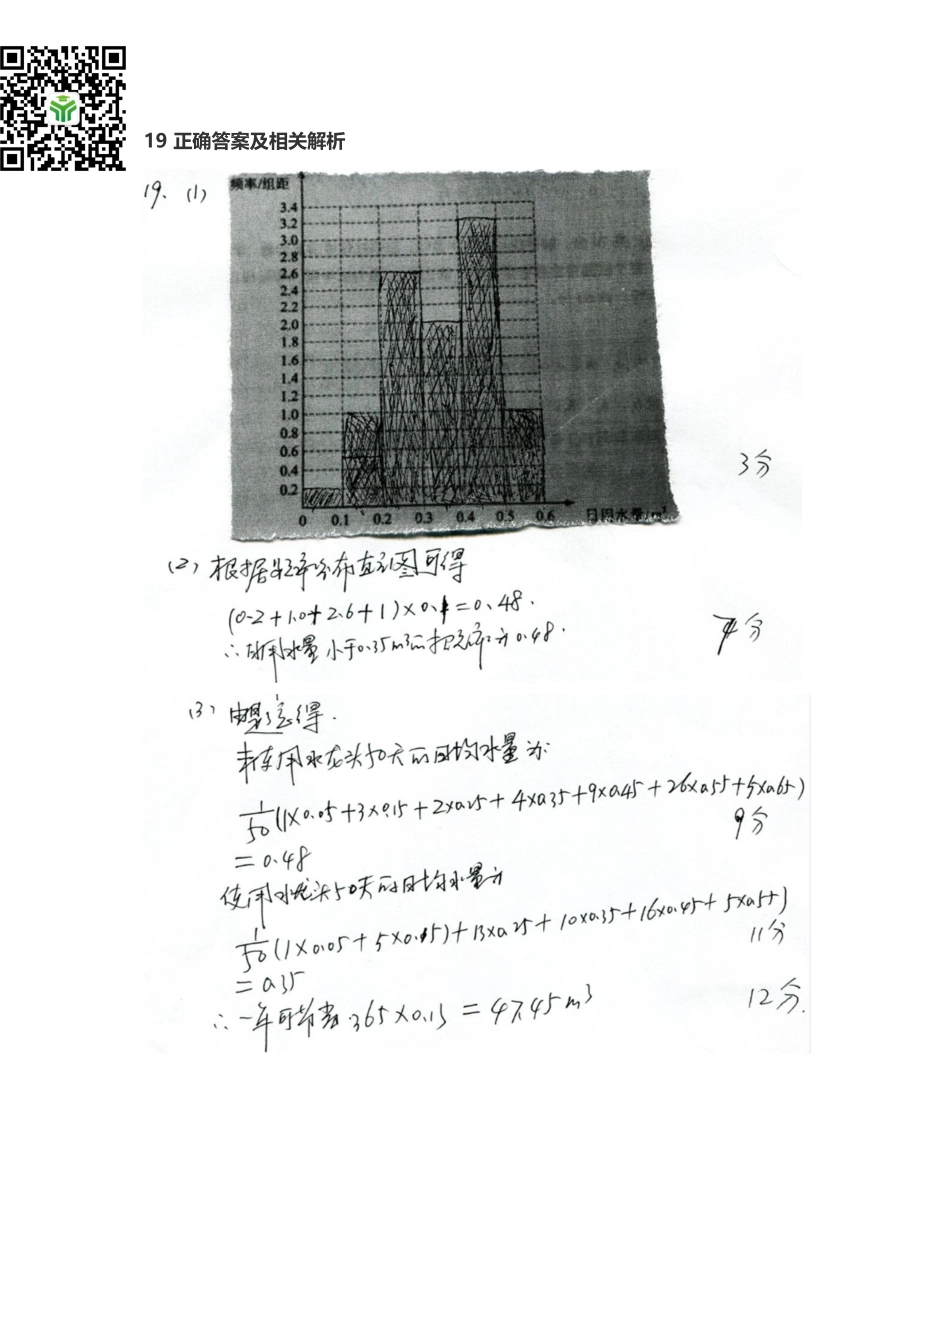 19 正确答案及相关解析
19. (1)
频率/组距
3.4
3.2
3.0
2.8
2.6
2.4
2.2
2.0
1.8
1.6
1.4
1.2
1.0
0.8
0.6
0.4
0.2
0 0.1 0.2 0.3 0.4 0.5 0.6 日用水量/m³
3分
(2) 根据频率分布直方图可得
(0.2+1.0+2.6+1)×0.1=0.48.
∴日用水量小于0.35m³的概率为0.48.
分
(3) 由题意得.
未使用水龙头50天的日均水量为
1/50(1×0.05+3×0.15+2×0.25+4×0.35+9×0.45+26×0.55+5×0.65)
9分
=0.48
使用水龙头50天的日均水量为
1/50(1×0.05+5×0.15)+13×0.25+10×0.35+16×0.45+5×0.55)
11分
=0.35
∴一年可节省365×0.13=47.45m³
12分.